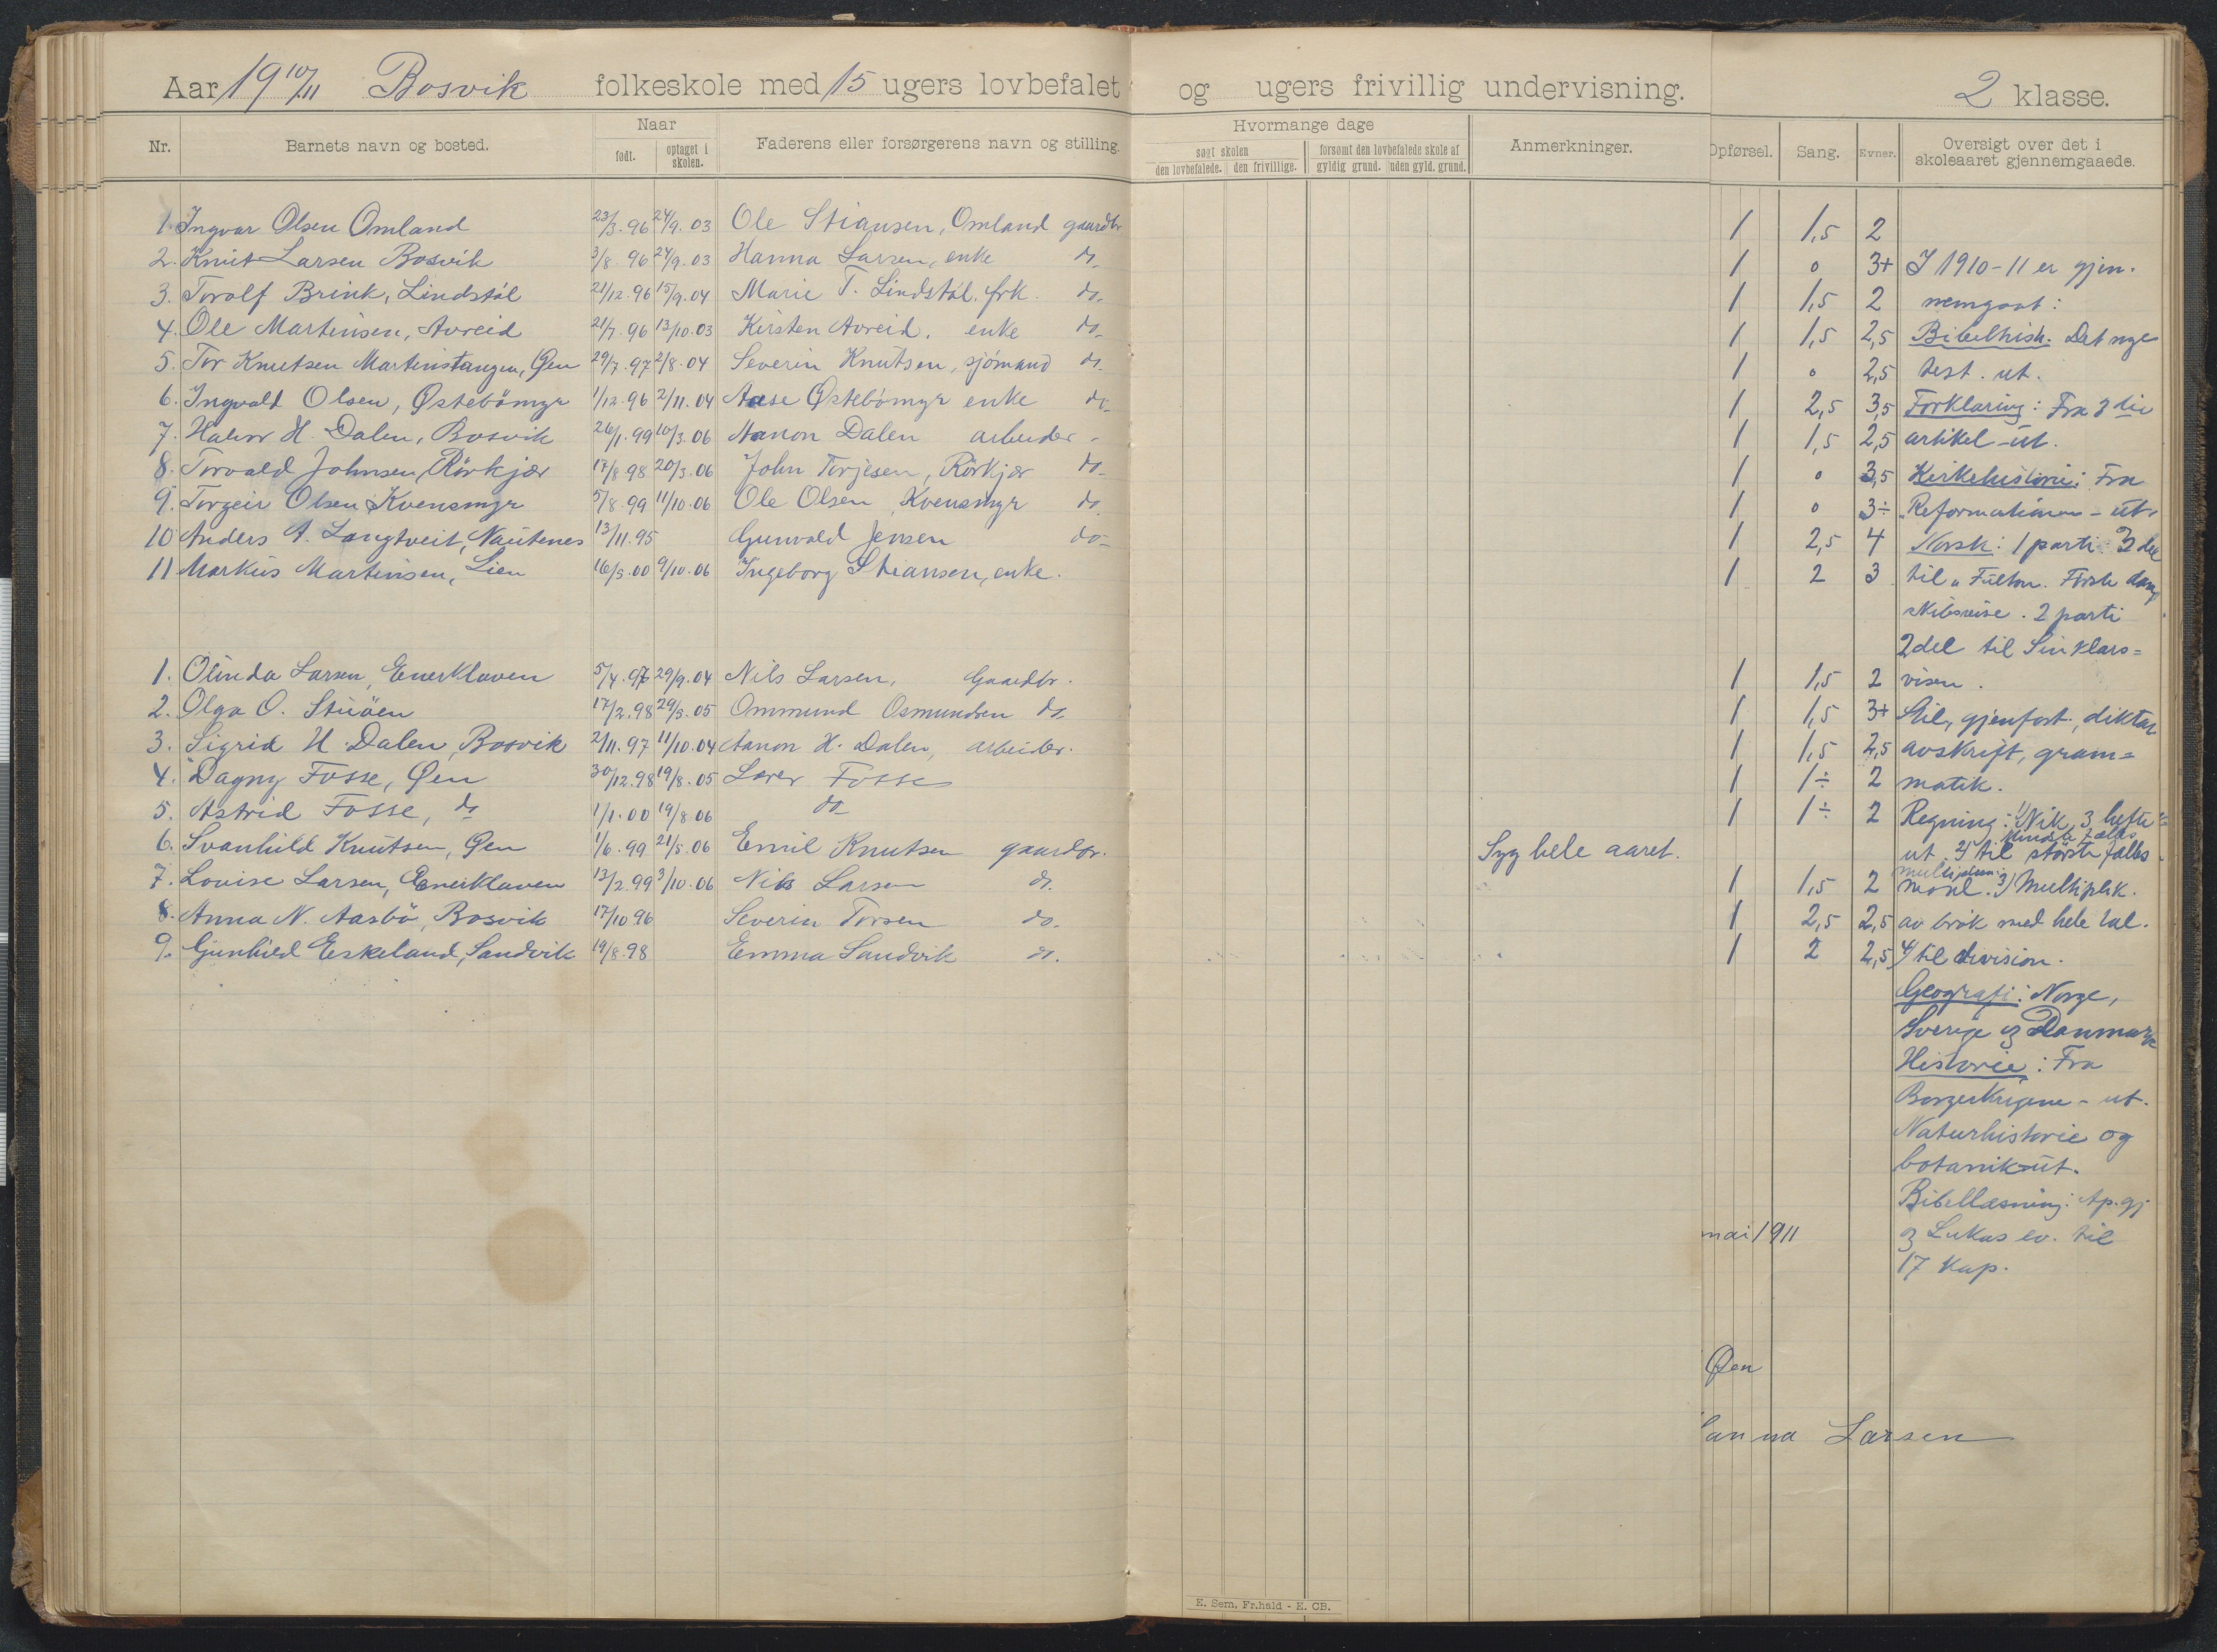 Aar 19 10/11 Bosvik folkeskole med 15 ugers lovbefalet og ugers frivillig undervisning. 2 klasse.
Nr. Barnets navn og bosted. Naar født. optaget i skolen. Faderens eller forsørgerens navn og stilling. Hvormange dage søgt skolen den lovbefalede. den frivillige. forsømt den lovbefalede skole af gyldig grund. uden gyld. grund. Anmerkninger. Opførsel. Sang. Evner. Oversigt over det i skoleaaret gjennemgaaede.
1. Ingvar Olsen Omland 23/3.96 24/9.03 Ole Stiansen, Omland gaardbr 1 1,5 2
2. Knut Larsen Bosvik 3/8.96 24/9.03 Hanna Larsen, enke do 1 0 3+ I 1910-11 er gjen-
3. Torolf Brink, Lindstøl 21/12.96 15/9.04 Marie T. Lindstøl, frk. do 1 1,5 2 nemgaat:
4. Ole Martinsen, Avreid 21/7.96 13/10.03 Kirsten Avreid, enke do 1 1,5 2,5 Bibelhist. Det nye
5. Tor Knutsen Martinstangen, Øen 29/7.97 2/8.04 Severin Knutsen, sjømand do 1 0 2,5 test. ut.
6. Ingvald Olsen, Østebømyr 1/12.96 2/11.04 Aase Østebømyr enke do 1 2,5 3,5 Forklaring: Fra 3die
7. Halvor H. Dalen, Bosvik 26/1.99 10/3.06 Aanon Dalen arbeider - 1 1,5 2,5 artikel - ut.
8. Torvald Johnsen, Rørkjær 17/8.98 20/3.06 John Torjesen, Rørkjær do 1 0 3,5 Kirkehistorie: Fra
9. Torgeir Olsen Kvensmyr 5/8.99 11/10.06 Ole Olsen, Kvensmyr do 1 0 3÷ "Reformationen - ut.
10 Anders A. Langtveit, Nautenes 13/11.95 Gunvald Jensen do 1 2,5 4 Norsk: 1 parti 3 del
11 Markus Martinsen, Lien 16/5.00 9/10.06 Ingeborg Stiansen, enke. 1 2 3 til "Fulton. Første damp
skibsreise. 2 parti
2 del til Sinklars=
1. Olinda Larsen, Enerklaven 5/4.96 29/9.04 Nils Larsen, Gaardbr. 1 1,5 2 visen.
2. Olga O. Stuöen 17/2.98 29/5.05 Ommund Osmundsen do 1 1,5 3+ Stil, gjenfort., diktat
3. Sigrid H. Dalen, Bosvik 2/11.97 11/10.04 Aanon H. Dalen, arbeider. 1 1,5 2,5 avskrift, gram=
4. Dagny Fosse, Øen 30/12.98 19/8.05 Lærer Fosse 1 1÷ 2 matik.
5. Astrid Fosse, do 1/1.00 19/8.06 do 1 1÷ 2 Regning: 1) Nik, 3 hefte
6. Svanhild Knutsen, Øen 1/6.99 21/5.06 Emil Knutsen gaardbr. Syg hele aaret. ut. 2) til største fælles
7. Louise Larsen, Enerklaven 13/2.99 3/10.06 Nils Larsen do. 1 1,5 2 maal. 3) Multiplik.
8. Anna N. Aasbö, Bosvik 17/10.96 Severin Torsen do. 1 2,5 2,5 av brøk med hele tal.
9. Gunhild Eskeland, Sandvik 19/8.98 Emma Sandvik do. 1 2 2,5 4) til division.
Geografi: Norge,
Sverige og Danmark
Historie: Fra
Borgerkrigene - ut.
Naturhistorie og
botanik-ut.
Bibellæsning: Ap.gj
mai 1911 og Lukas ev. til
17 kap.
Øen
anna Larsen
E. Sem, Fr.hald - E. CB.